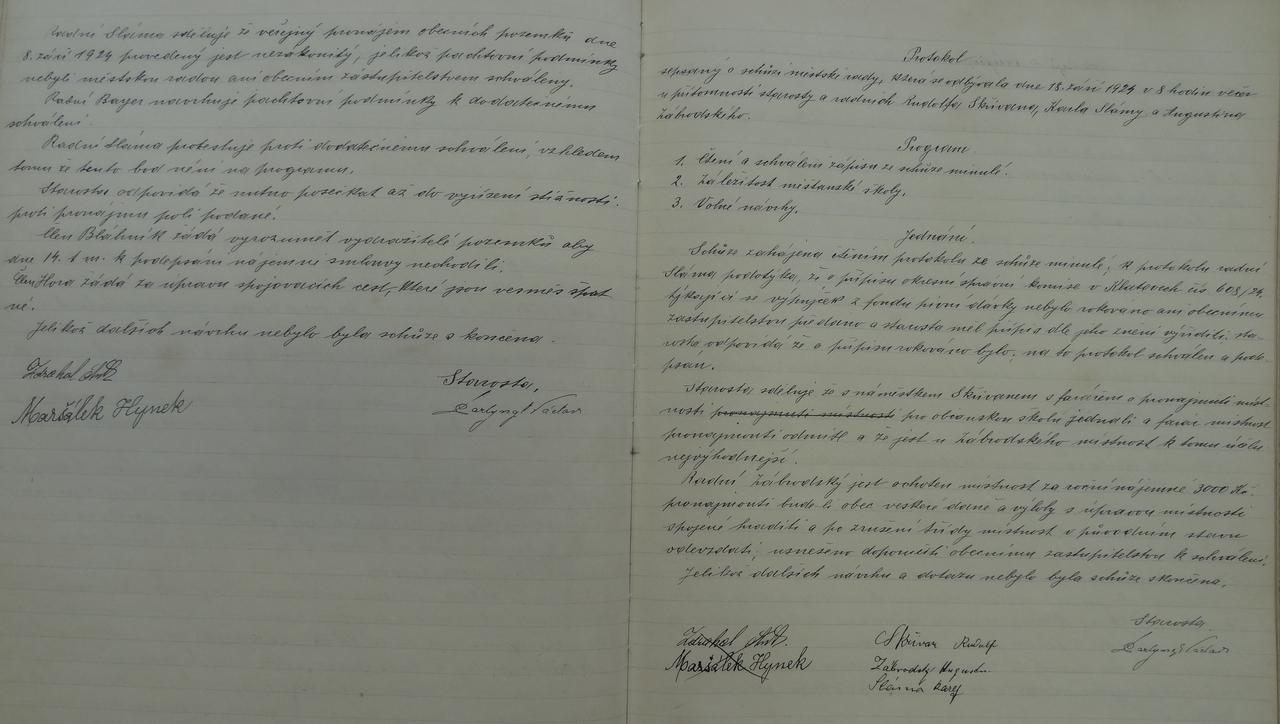 Radní Sláma sděluje že veřejný pronájem obecních pozemků dne
8. září 1924 provedený jest nezákonitý, jelikož pachtovní podmínky
nebyli městskou radou ani obecním zastupitelstvem schváleny.
Radní Bayer navrhuje pachtovní podmínky k dodatečnému
schválení.
Radní Sláma protestuje proti dodatečnému schválení, vzhledem
tomu že tento bod není na programu.
Starosta odpovídá že nutno posečkat až do vyřízení stížnosti
proti pronájmu polí podané.
Člen Bláhník žádá vyrozumět vydražitelé pozemků aby
dne 14. t. m. k podepsání nájemné smlouvy nechodili.
Člen Hora žádá za úpravu spojovacích cest, které jsou vesměs špat
né.
Jelikož dalších návrhu nebylo byla schůze skončena.
Starosta,
Maršálek Hynek
Protokol
sepsaný o schůzi městské rady, která se odbývala dne 18. září 1924 v 8 hodin večer
u přítomnosti starosty a radních Rudolfa Skřivana, Karla Slámy a Augustina
Zábrodského.
Program.
1. Čtení a schválení zápisu ze schůze minulé.
2. Záležitost měšťanské školy.
3. Volné návrhy.
Jednání.
Schůze zahájena čtením protokolu ze schůze minulé; k protokolu radní
Sláma podotýká, že o přípisu okresní správní komise v Klatovech čís 608/24.
týkající se výpujček z fondu pivní dávky nebylo rokováno ani obecnímu
zastupitelstvu předáno a starosta měl přípis dle jeho znění vyříditi, sta-
rosta odpovídá že a přípisu rokováno bylo; na to protokol schválen a pode-
psán.
Starosta sděluje že s náměstkem Skřivanem s farářem o pronajmutí míst-
nosti pronajmuti místnosti pro občanskou školu jednali a farář místnost
pronajmouti odmítl a že jest u Zábrodského místnost k tomu účelu
nejvýhodnější.
Radní Zábrodský jest ochoten místnost za roční nájemné 3000 Kč.
pronajmouti bude-li obec veškeré daně a výlohy s úpravou místnosti
spojené hraditi a po zrušení třídy místnost v původním stavu
odevzdati; usnešeno doporučiti obecnímu zastupitelstvu k schválení.
Jelikož dalších návrhu a dotazu nebylo byla schůze skončena.
Starosta
Skřivan Rudolf
Maršálek Hynek
Zábrodský Augustin
Sláma Karel